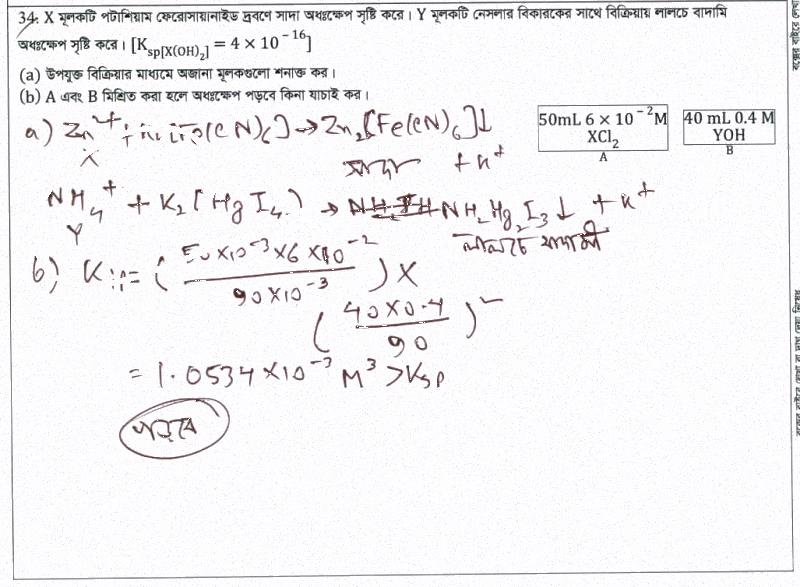 34. X মূলকটি পটাশিয়াম ফেরোসায়ানাইড দ্রবণে সাদা অধঃক্ষেপ সৃষ্টি করে। Y মূলকটি নেসলার বিকারকের সাথে বিক্রিয়ায় লালচে বাদামি
অধঃক্ষেপ সৃষ্টি করে। [K_sp[X(OH)₂] = 4 × 10⁻¹⁶]
(a) উপযুক্ত বিক্রিয়ার মাধ্যমে অজানা মূলকগুলো শনাক্ত কর।
(b) A এবং B মিশ্রিত করা হলে অধঃক্ষেপ পড়বে কিনা যাচাই কর।
50mL 6 × 10⁻²M
XCl₂
A
40 mL 0.4 M
YOH
B
a) Zn²⁺ + (CN)₆] → Zn₂[Fe(CN)₆]↓
X সাদা + K⁺
NH₄⁺ + K₂[HgI₄] → NH₂Hg₂I₃↓ + K⁺
Y লালচে বাদামী
b) K = (50×10⁻³×6×10⁻² / 90×10⁻³) ×
(40×0.4 / 90)²
= 1.0534×10⁻³ M³ > Ksp
পড়বে